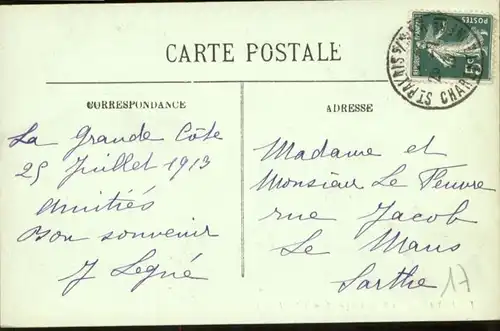 CARTE POSTALE
CORRESPONDANCE
La Grande Côte
25 Juillet 1913
Amitiés
Bon souvenir
J Legné
ADRESSE
Madame et
Monsieur Le Fleuvre
rue Jacob
Le Mans
Sarthe
17
POSTES
5c